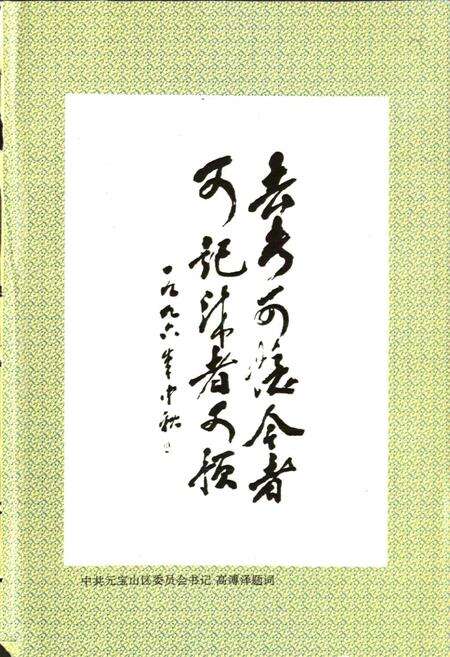 去者可憶今者
可記来者可預
一九九六年中秋
中共元宝山区委员会书记 高溥泽题词